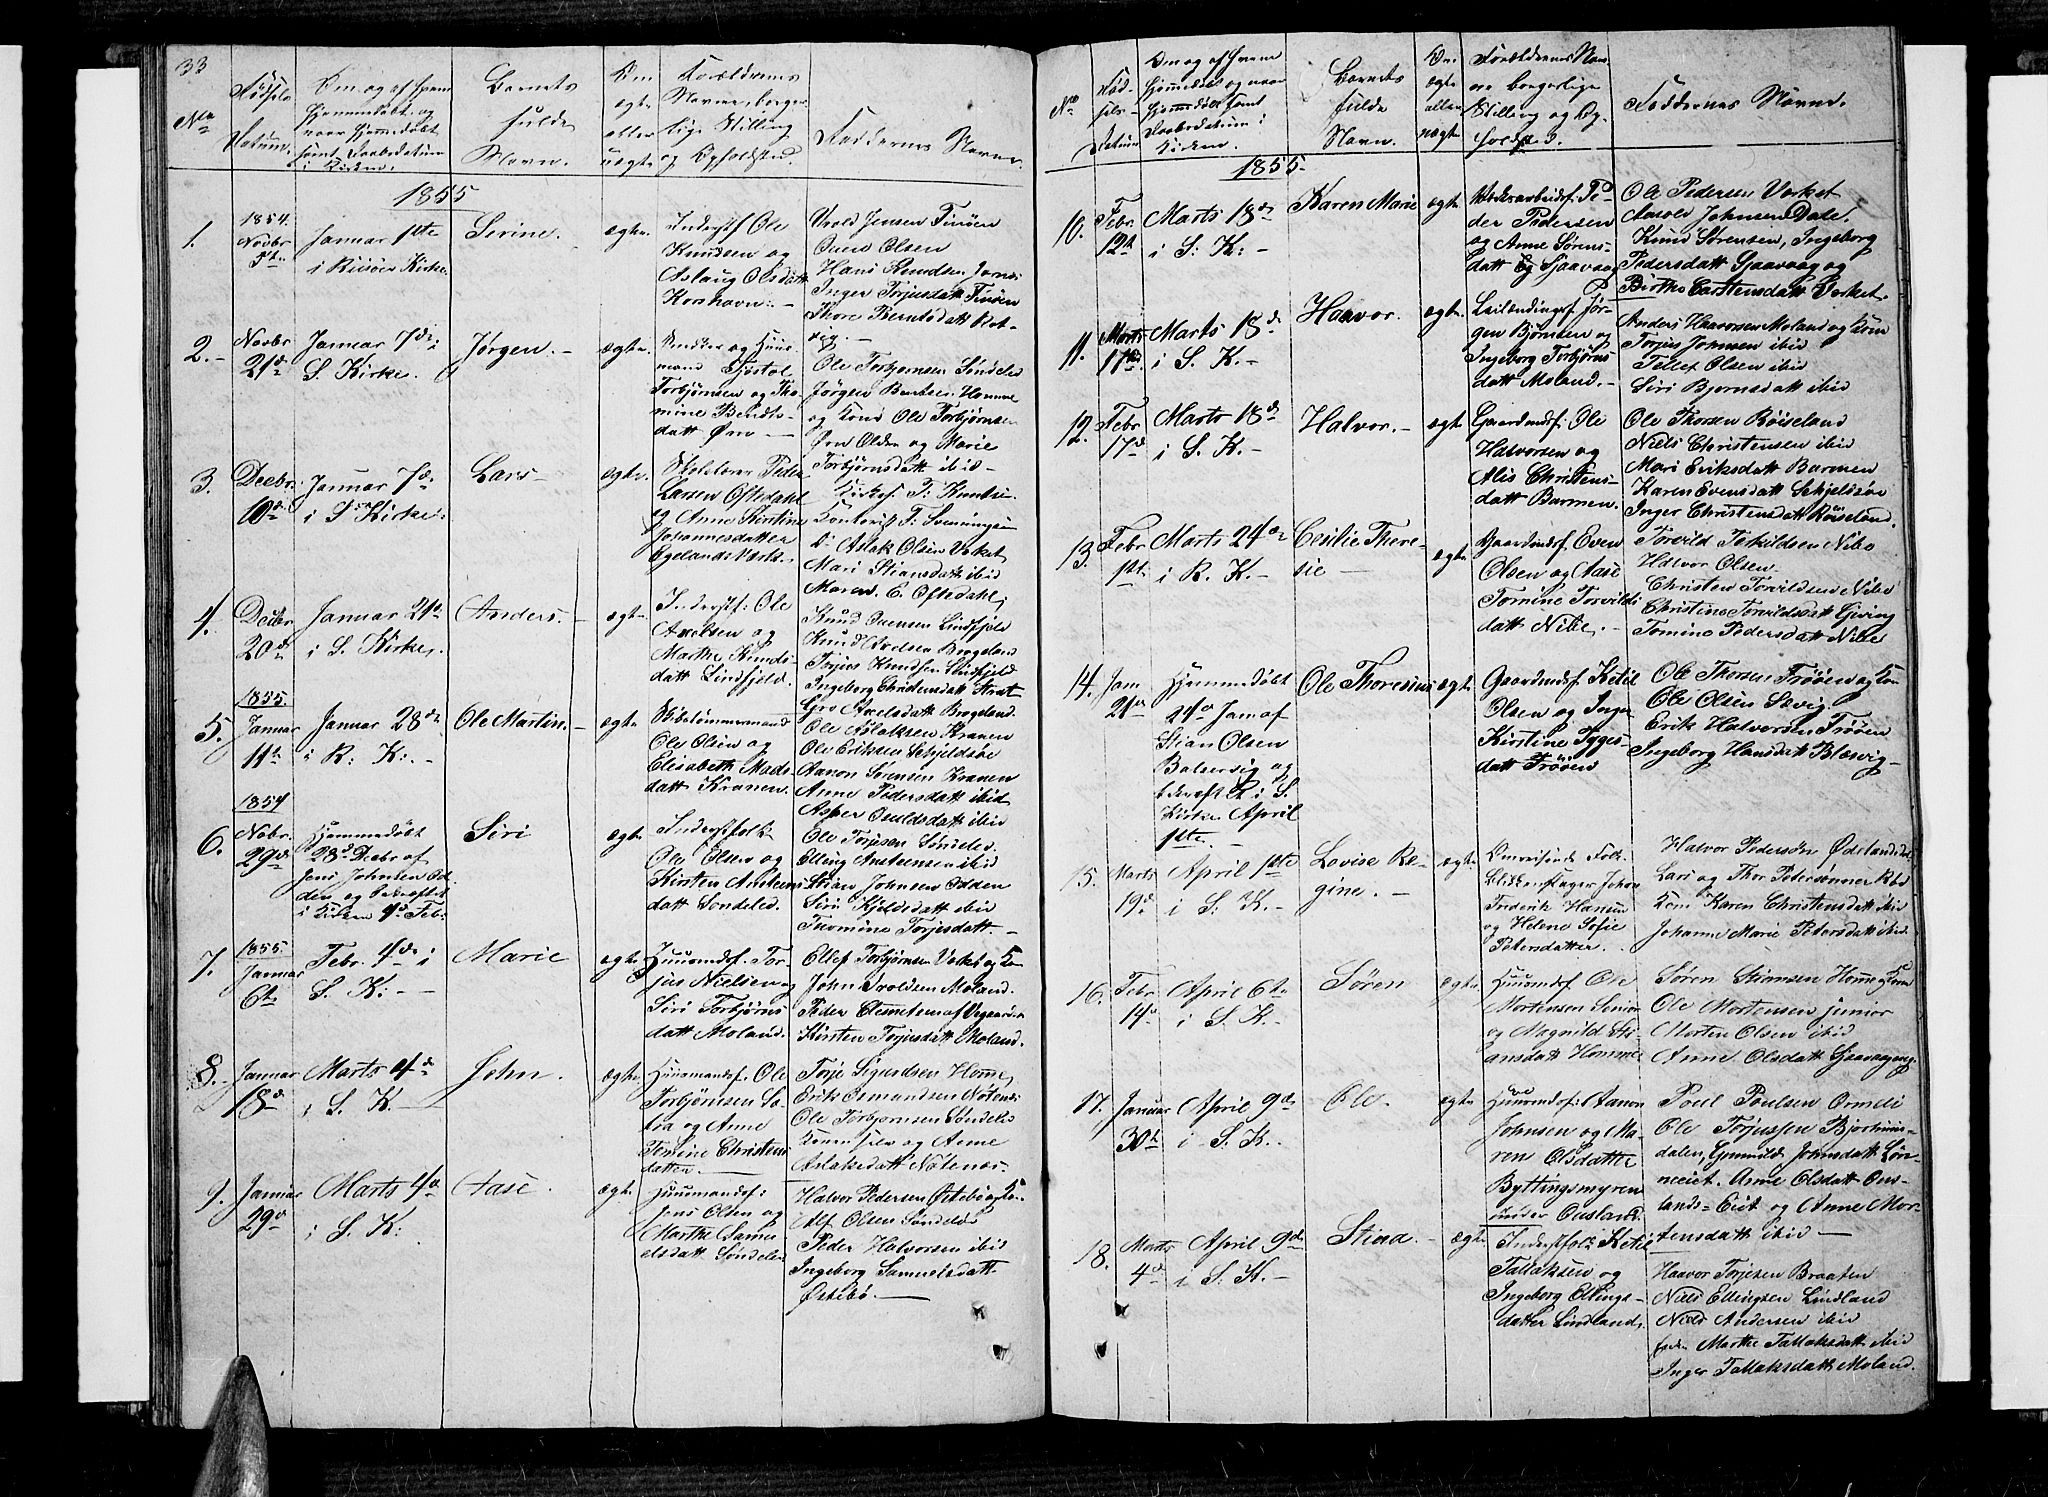 33
No
Fødsels
Datum.
Om og af hvem
hjemmedøbt og
naar hjemmedøbt
samt Daabsdatum
i Kirken.
Barnets
fulde
Navn.
Om
ægte
eller
uægte
Forældrenes
Navne, borger-
lige Stilling
og Opholdsted.
Faddernes Navne
1855
1.
1854.
Novbr
5te
Januar 1ste
i Risöer Kirke.
Serine.
ægte.
Inderstf Ole
Knudsen og
Aslaug Olsdatt
Korshavn. —
Ovens Olsen
Hans Knudsen
Inger Torjusdatt
Thore Berntsdatt
2. -
Novbr
21de
Januar 7de
S. Kirke.
Jørgen. -
ægte.
og Huus-
mand
Torbjörnsen og Tho-
mine Bendts-
datt
Ole Torbjornsen Söndeled
Jörgen Bentsen Homme
og Kone Ole Torbjörnsen
og Marie
Torbjörnsdatt ibid -
3.
Decbr
10de
Januar 7de
i S Kirke.
Lars -
ægte.
Skolelærer Peder
Larsen Oftedahl
og Anne Kirstine
Johannesdatter
Egelands Værk.
Aslak Olsen Verket
Mari Stiansdatt ibid
Maren E. Oftedahl,
4.
Decbr
20de
Januar 21de
i S. Kirke.
Anders. -
ægte
Inderstf: Ole
Axelsen og
Marthe Knuds-
datt Lindfjeld.
Knud Ovensen Lindfjeld
Knud Axelsen Brogeland
Torjus Knudsen Lindfjeld
Ingeborg Christensdatt
Gro Axelsdatt Brogeland.
5.
1855.
Januar
11te
Januar 28de
i R: K: -
Ole Martin. -
ægte
Skibstømmermand
Ole Olsen og
Elisabeth Mads-
datt Kranen.
Ole Aslaksen Kranen
Ole Eriksen Schjeldsöe
Aanon Sørensen Kranen
Anne Pedersdatt ibid
Asper Osuldsdatt ibid
6.
1854
Nobr.
29de
Hjemmedöbt
28de Decbr af
Jens Johnsen Od-
den og bekræftet
i Kirken 4de Feb:
Siri
ægte
Inderstfolk
Ole Olsen og
Kirsten Anstens
datt Sondeled.
Ole Torjesen Söndeled.
Elling Anstensen ibid
Stian Johnsen Odden
Siri Kjeldsdatt ibid
Thomine Torjesdatt -
7.
1855.
Januar
6te
Febr. 4de i
S. K: -
Marie
ægte
Huusmdsf: Tor-
jus Nielsen og
Siri Torbjörns
datt Moland.
Ellef Torbjörnsen Verket og Kone
John Troldsen Moland.
Peder Clemetsen af Vegaarden
Kirsten Torjusdatt Moland.
8.
Januar
18de
Marts 4de
i S. K. -
John.
ægte
Huusmandsf. Ole
Torbjörnsen
og Anne
Temine Christens
datter -
Torje Sigurdsen Homme,
Erik Osmundsen Nötenæs
Ole Torbjornsen Söndeled
og Anne
Aslaksdatt Nötenæs -
9.
Januar
29de
Marts 4de
i S. K:
Aase.
ægte
Huusmandsf:
Jens Olsen og
Marthe Samu-
elsdatt Söndeled
Halvor Pedersen Östebö og Ko-
Alf Olsen Söndeled
Peder Halvorsen ibid
Ingeborg Samuelsdatt
Östebö. -
No
Fød-
sels-
Datum
Om og af hvem
hjemmedöbt og naar
hjemmedöbt samt
Daabsdatum i
Kirken.
Barnets
fulde
Navn.
Om
ægte
eller
uægte
Forældrenes Nav-
ne borgerlige
Stilling og Op-
holdsted.
Faddernes Navne.
1855.
10.
Febr
12te
Marts 18de
i S: K: -
Karen Marie
ægte
Værksarbeidsf. Pe-
der Pedersen
og Anne Sørens-
datt Eg Sjaavaag
Ole Pedersen Verket
Aavold Johnsen Dale,
Knud Sørensen, Ingeborg
Pedersdatt Sjaavaag og
Birthe Carstensdatt Verket.
11.
Marts
Marts 18de
i S. K. -
Haavor.
ægte.
Leilændingsf. Jør-
gen Björnsen og
Ingeborg Torbjörns
datt Moland. -
Anders Haavorsen Moland og Kone
Torjus Johnsen ibid
Tellef Olsen ibid
Siri Bjornsdatt ibid
12.
Febr
17de
Marts 18de
i S. K. -
Halvor. -
ægte
Gaardmdsf: Ole
Halvorsen og
Alis Christens-
datt Barmen.
Ole Thorsen Röiseland
Niels Christensen ibid
Mari Eriksdatt Barmen
Karen Evensdatt Schjeldsöe
Inger Christensdatt Röiseland.
13.
Febr
1ste
Marts 24de
i R. K. -
Cecilie There-
sie -
ægte
Gaardmdsf. Even
Olsen og Aase
Tomine Torvilds
datt Nibe. -
Torvild Terkildsen Nibe
Halvor Olsen.
Christen Torvildsen Nibe
Christine Torvildsdatt Gjeving
Tomine Pedersdatt Nibe
14.
Jan
21de
Hjemmedöbt
24de Jan af
Stian Olsen
Balsevig og
bekræftet i S.
Kirke April
1ste. -
Ole Thoresius
ægte
Gaardmdsf. Ketil
Olsen og Inger
Kirstine Tyges-
datt Tröen
Ole Thorsen Tröen og Kone
Ole Olsen Savig.
Erik Halvorsen Tröen
Ingeborg Hansdatt Blesvig -
15.
Marts
19de
April 1ste
i S: K: -
Lovise Re-
gine. -
ægte
Omreisende Folk
Blikkenslager Johan
Frederik Hansen
og Helene Sofie
Petersdatter.
Halvor Pedersen
Lars og Thor Pedersönner ibid
Kone Karen Christensdatt ibid
Johanne Marie Petersdatt ibid.
16.
Febr
14de
April 6te
i S. K. -
Sören
ægte
Huusmdsf. Ole
Mortensen Senior
og Magnild Sti-
ansdatt Homme
Søren Stiansen Homme og Kone
Ole Mortensen junior
Morten Olsen ibid
Anne Olsdatt
17.
Januar
30te
April 9de
i S. K.
Ole.
ægte
Huusmdsf: Aanon
Johnsen og Ma-
ren Olsdatter
Byttingsmyren
under Ausland.
Poul Poulsen
Ole Torjussen
dalen, Gunnild Johnsdatt
Anne Olsdatt Aus-
lands-Eiet og Anne Mor-
tensdatt ibid -
18.
Marts
4de
April 9de
i S. K. -
Stina. -
ægte
Inderstfolk Ketil
Tallaksen og
Ingeborg Ellings-
datter Lindland.
Haavor Torjesen Braaten
Niels Ellingsen Lindland
Niels Andersen ibid
Marthe Tallaksdatt ibid
Inger Tallaksdatt Moland.